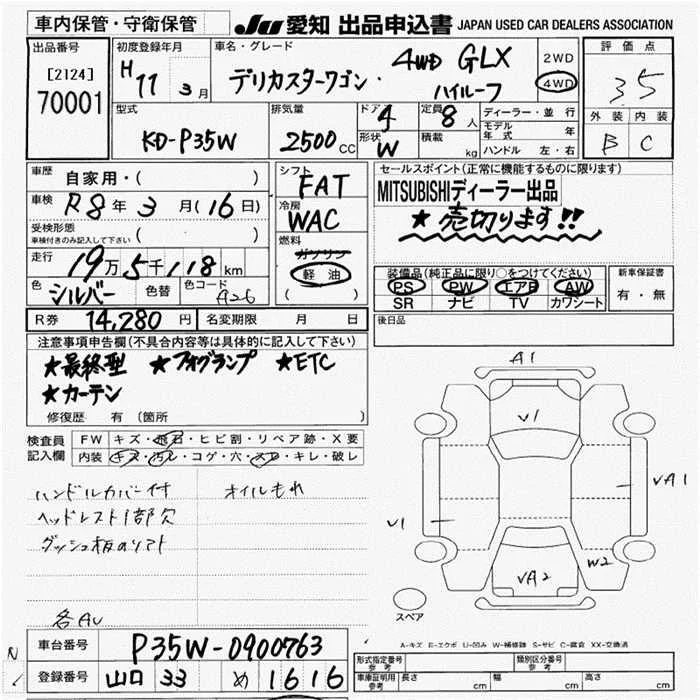 車内保管・守衛保管
JU 愛知 出品申込書 JAPAN USED CAR DEALERS ASSOCIATION
出品番号
[2124]
70001
初度登録年月
H11 3月
車名・グレード
デリカスターワゴン・4WD GLX ハイルーフ
2WD
4WD
評価点
3.5
外装 内装
B C
型式
KD-P35W
排気量
2500cc
ドア 4
形状 W
定員 8人
積載 kg
ディーラー・並行
モデル年式 年
ハンドル 左・右
車歴 自家用・( )
車検 R8年3月(16日)
受検形態
車検付きのみ記入して下さい ( )
走行 19万5千118km
色 シルバー 色替 色コード A26
R券 14,280円 名変期限 月 日
シフト FAT
冷房 WAC
燃料
ガソリン
軽油
( )
セールスポイント(正常に機能するものに限ります)
MITSUBISHIディーラー出品
★売切ります!!
装備品(純正品に限り○をつけてください)
PS PW エアB AW
SR ナビ TV カワシート
新車保証書
有・無
後日品
注意事項申告欄(不具合内容等は具体的に記入して下さい)
★最終型 ★フォグランプ ★ETC
★カーテン
修復歴 有 (箇所 )
検査員記入欄
FW キズ・飛石・ヒビ割・リペア跡・X要
内装 キズ・汚レ・コゲ・穴・スレ・キレ・破レ
ハンドルカバー付 オイルもれ
ヘッドレスト1部欠
ダッシュ板のソフト
各AU
A1
V1
VA1
V1
W2
VA2
スペア
A-キズ E-エクボ U-凹み W-補修跡 S-サビ C-腐食 XX-交換済
N
車台番号 P35W-0900763
登録番号 山口 33 め 1616
形式指定番号 参考
類別区分番号 参考
車庫証明用 参考 長さ cm 幅 cm 高さ cm